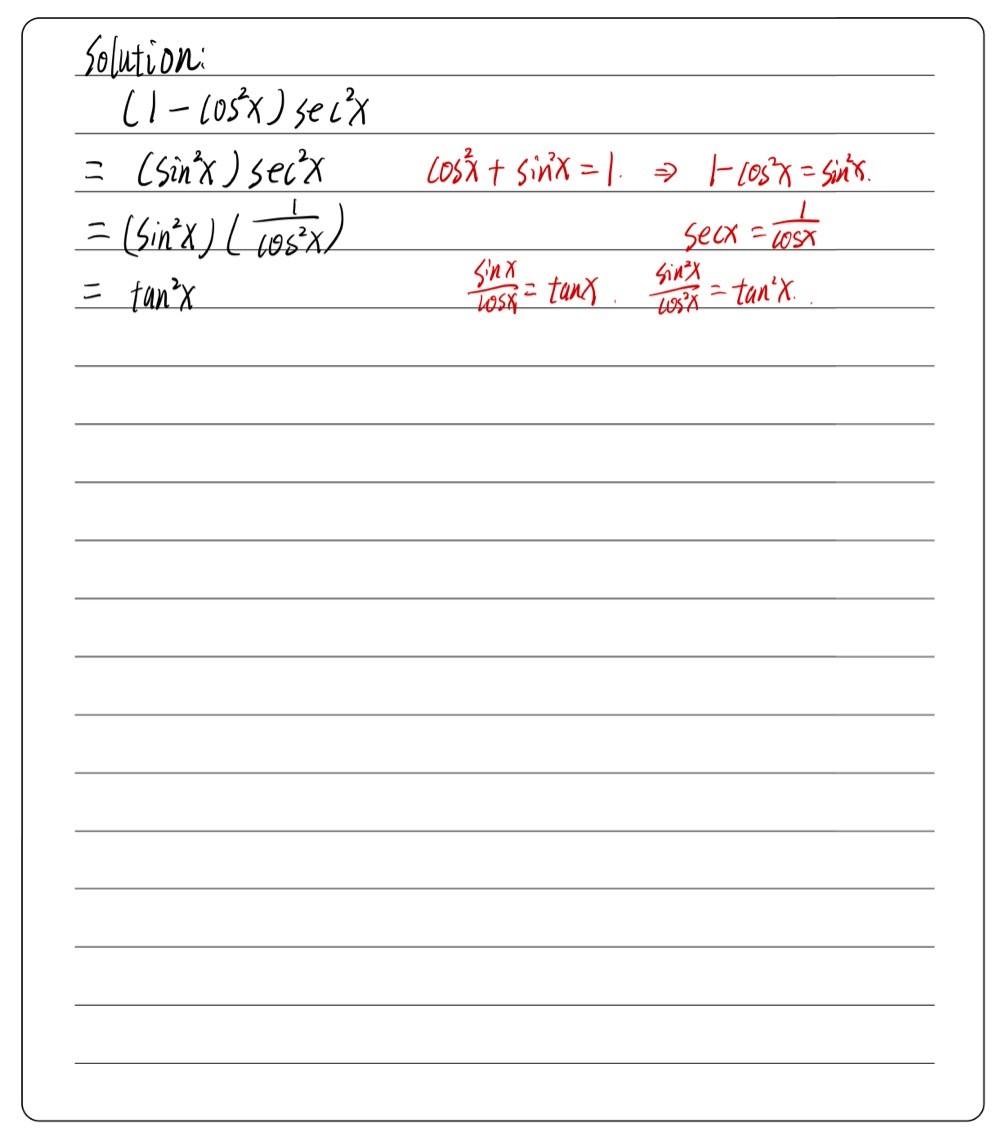 Solution:
(1 - cos²x) sec²x
= (sin²x) sec²x cos²x + sin²x = 1. ⇒ 1 - cos²x = sin²x.
= (sin²x) (1/cos²x) secx = 1/cosx
= tan²x sinx/cosx = tanx. sin²x/cos²x = tan²x. .